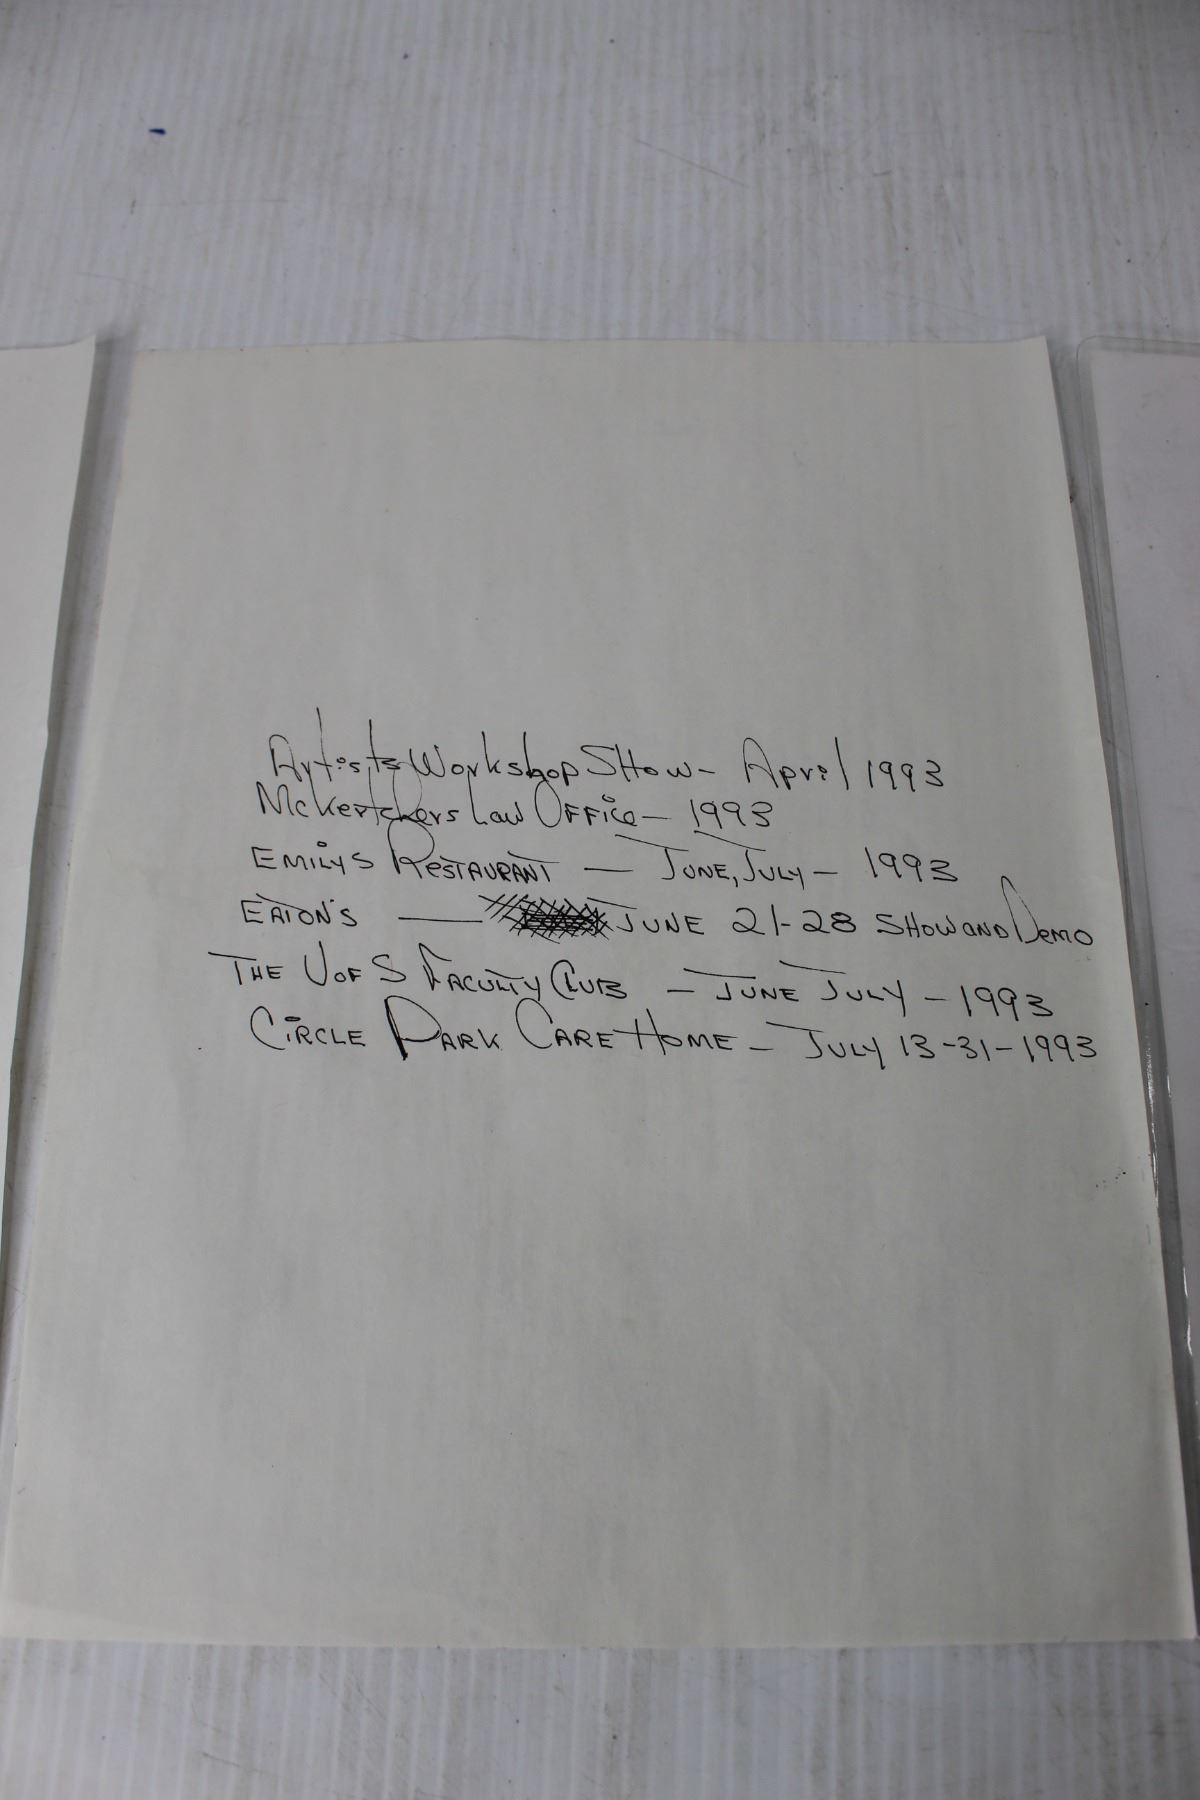 Artists Workshop SHow - April 1993
McKerchers Law OFFice - 1993
EMiLYS RESTAURANT — JUNE, JULY - 1993
EATON'S — JUNE 21-28 SHOW AND DEMO
THE U OF S FACULTY CLUB - JUNE JULY - 1993
CiRCLE PARK CARE HOME - JULY 13-31-1993